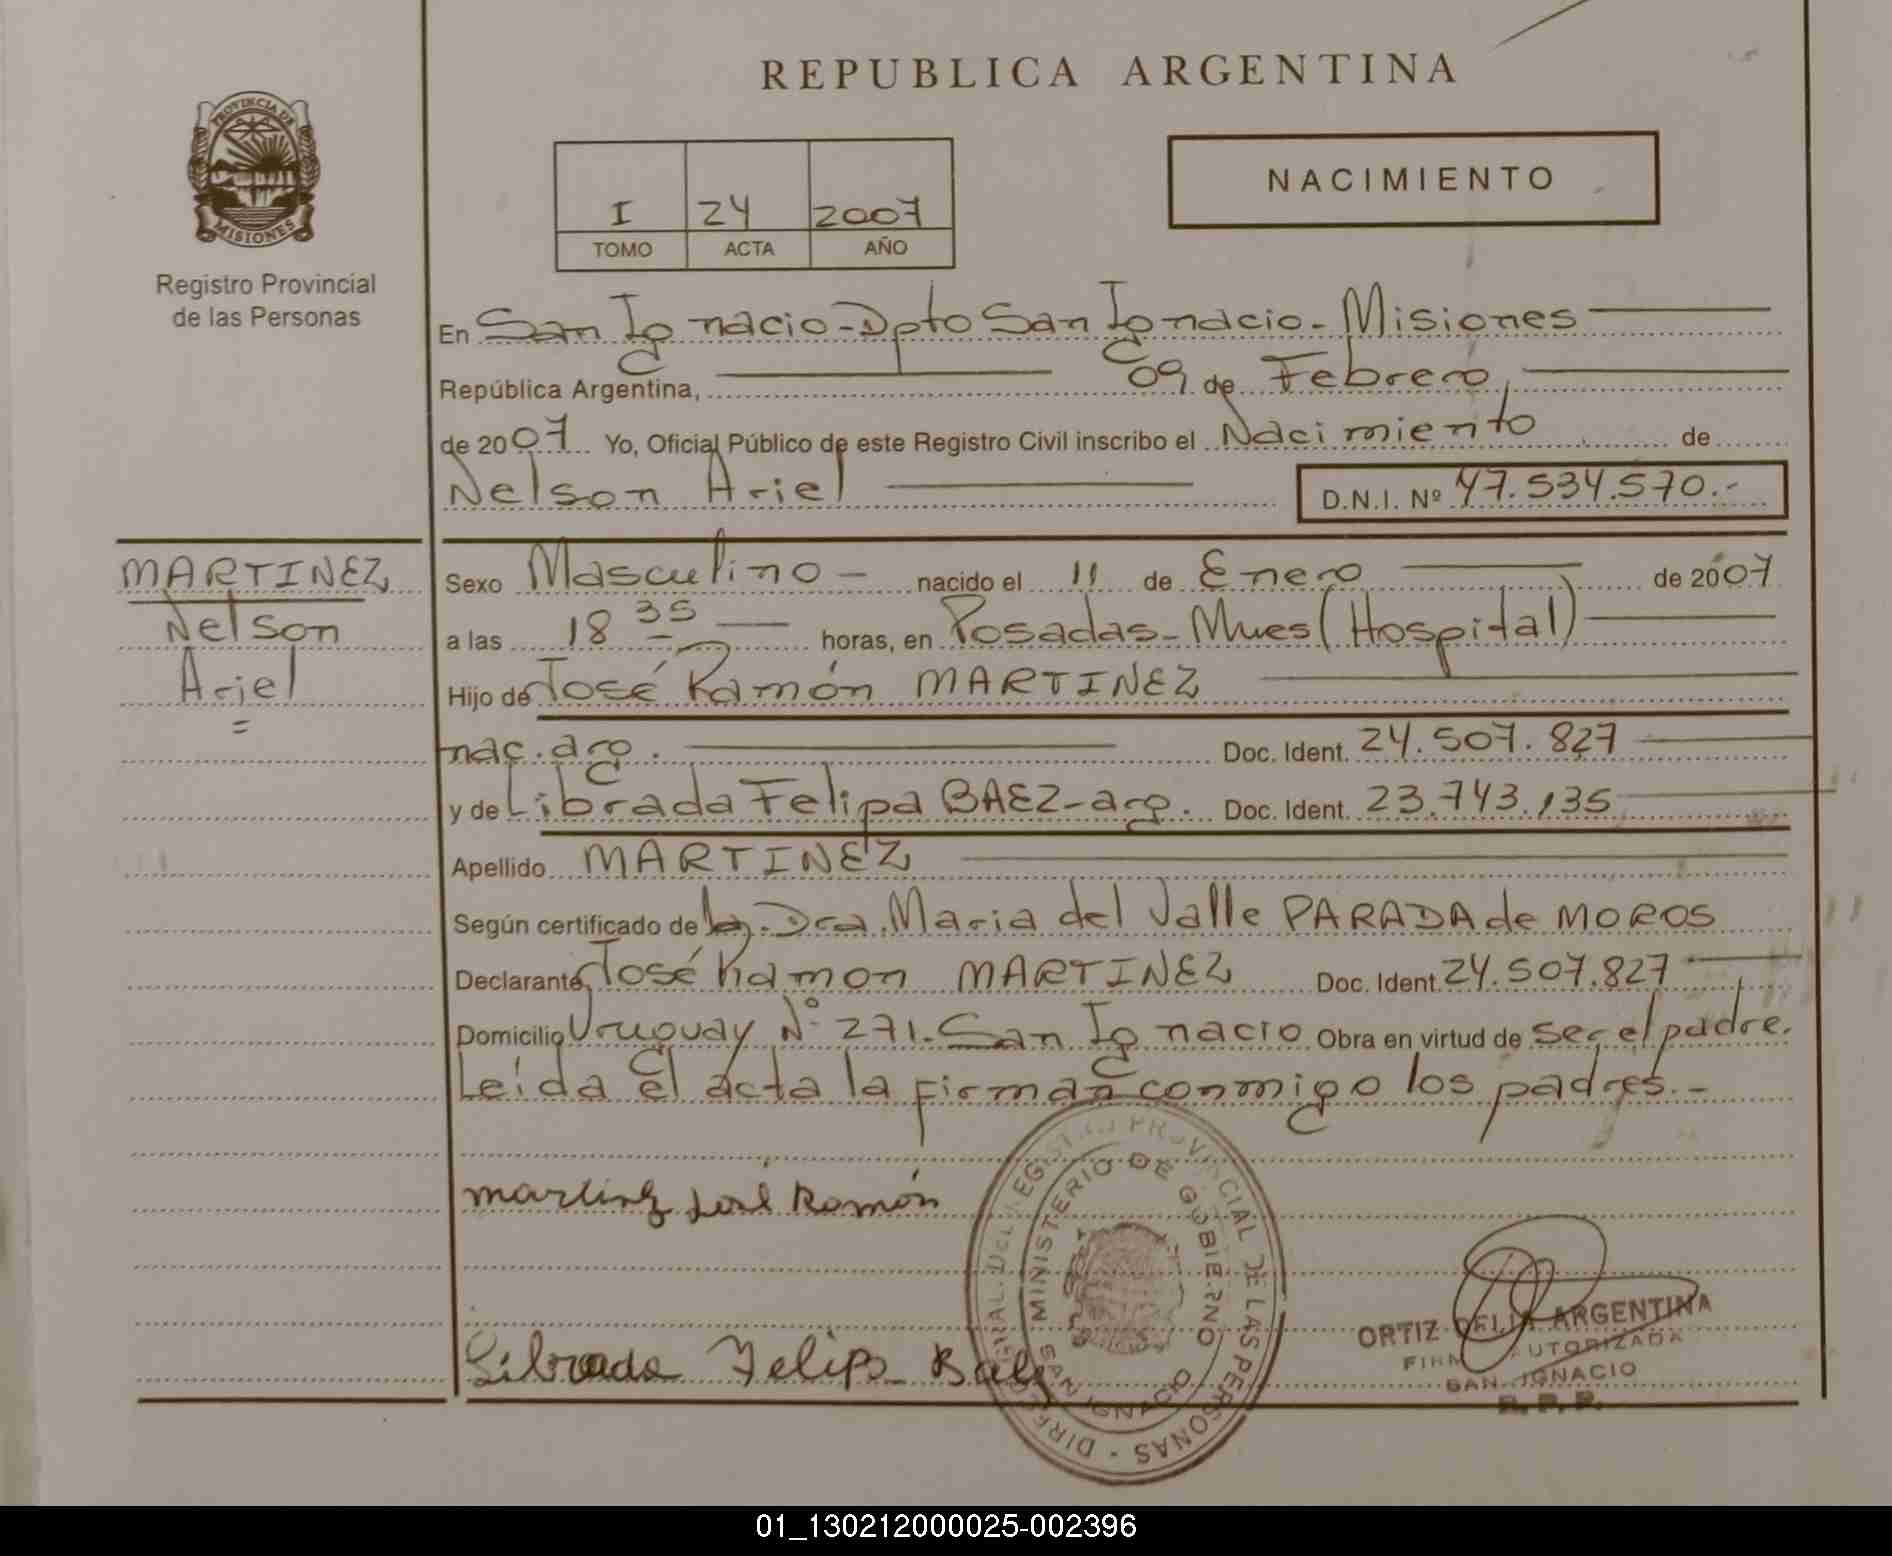 REPUBLICA ARGENTINA
PROVINCIA DE
MISIONES
Registro Provincial
de las Personas
I 24 2007
TOMO ACTA AÑO
NACIMIENTO
En San Ignacio - Dpto San Ignacio - Misiones
República Argentina, 09 de Febrero
de 2007 Yo, Oficial Público de este Registro Civil inscribo el Nacimiento de
Nelson Ariel D.N.I. Nº 47.534.570.-
MARTINEZ
Nelson
Ariel
Sexo Masculino - nacido el 11 de Enero de 2007
a las 18 35 horas, en Posadas - Mnes (Hospital)
Hijo de José Ramón MARTINEZ
nac. arg. Doc. Ident. 24.507.827
y de Librada Felipa BAEZ - arg. Doc. Ident. 23.743.135
Apellido MARTINEZ
Según certificado de la Dra. Maria del Valle PARADA de MOROS
Declarante José Ramon MARTINEZ Doc. Ident. 24.507.827
Domicilio Uruguay Nº 271. San Ignacio Obra en virtud de ser el padre.
Leída el acta la firman conmigo los padres.-
Martinez José Ramón
Librada Felipa Baez
DIRECCION GENERAL DEL REGISTRO PROVINCIAL DE LAS PERSONAS
MINISTERIO DE GOBIERNO
SAN IGNACIO
ORTIZ DELIA ARGENTINA
FIRMA AUTORIZADA
SAN IGNACIO
R. P. P.
01_130212000025-002396